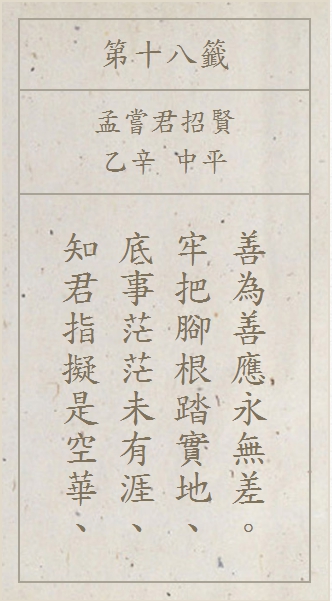 第十八籤
孟嘗君招賢
乙辛 中平
知君指擬是空華、
底事茫茫未有涯、
牢把腳根踏實地、
善為善應永無差。